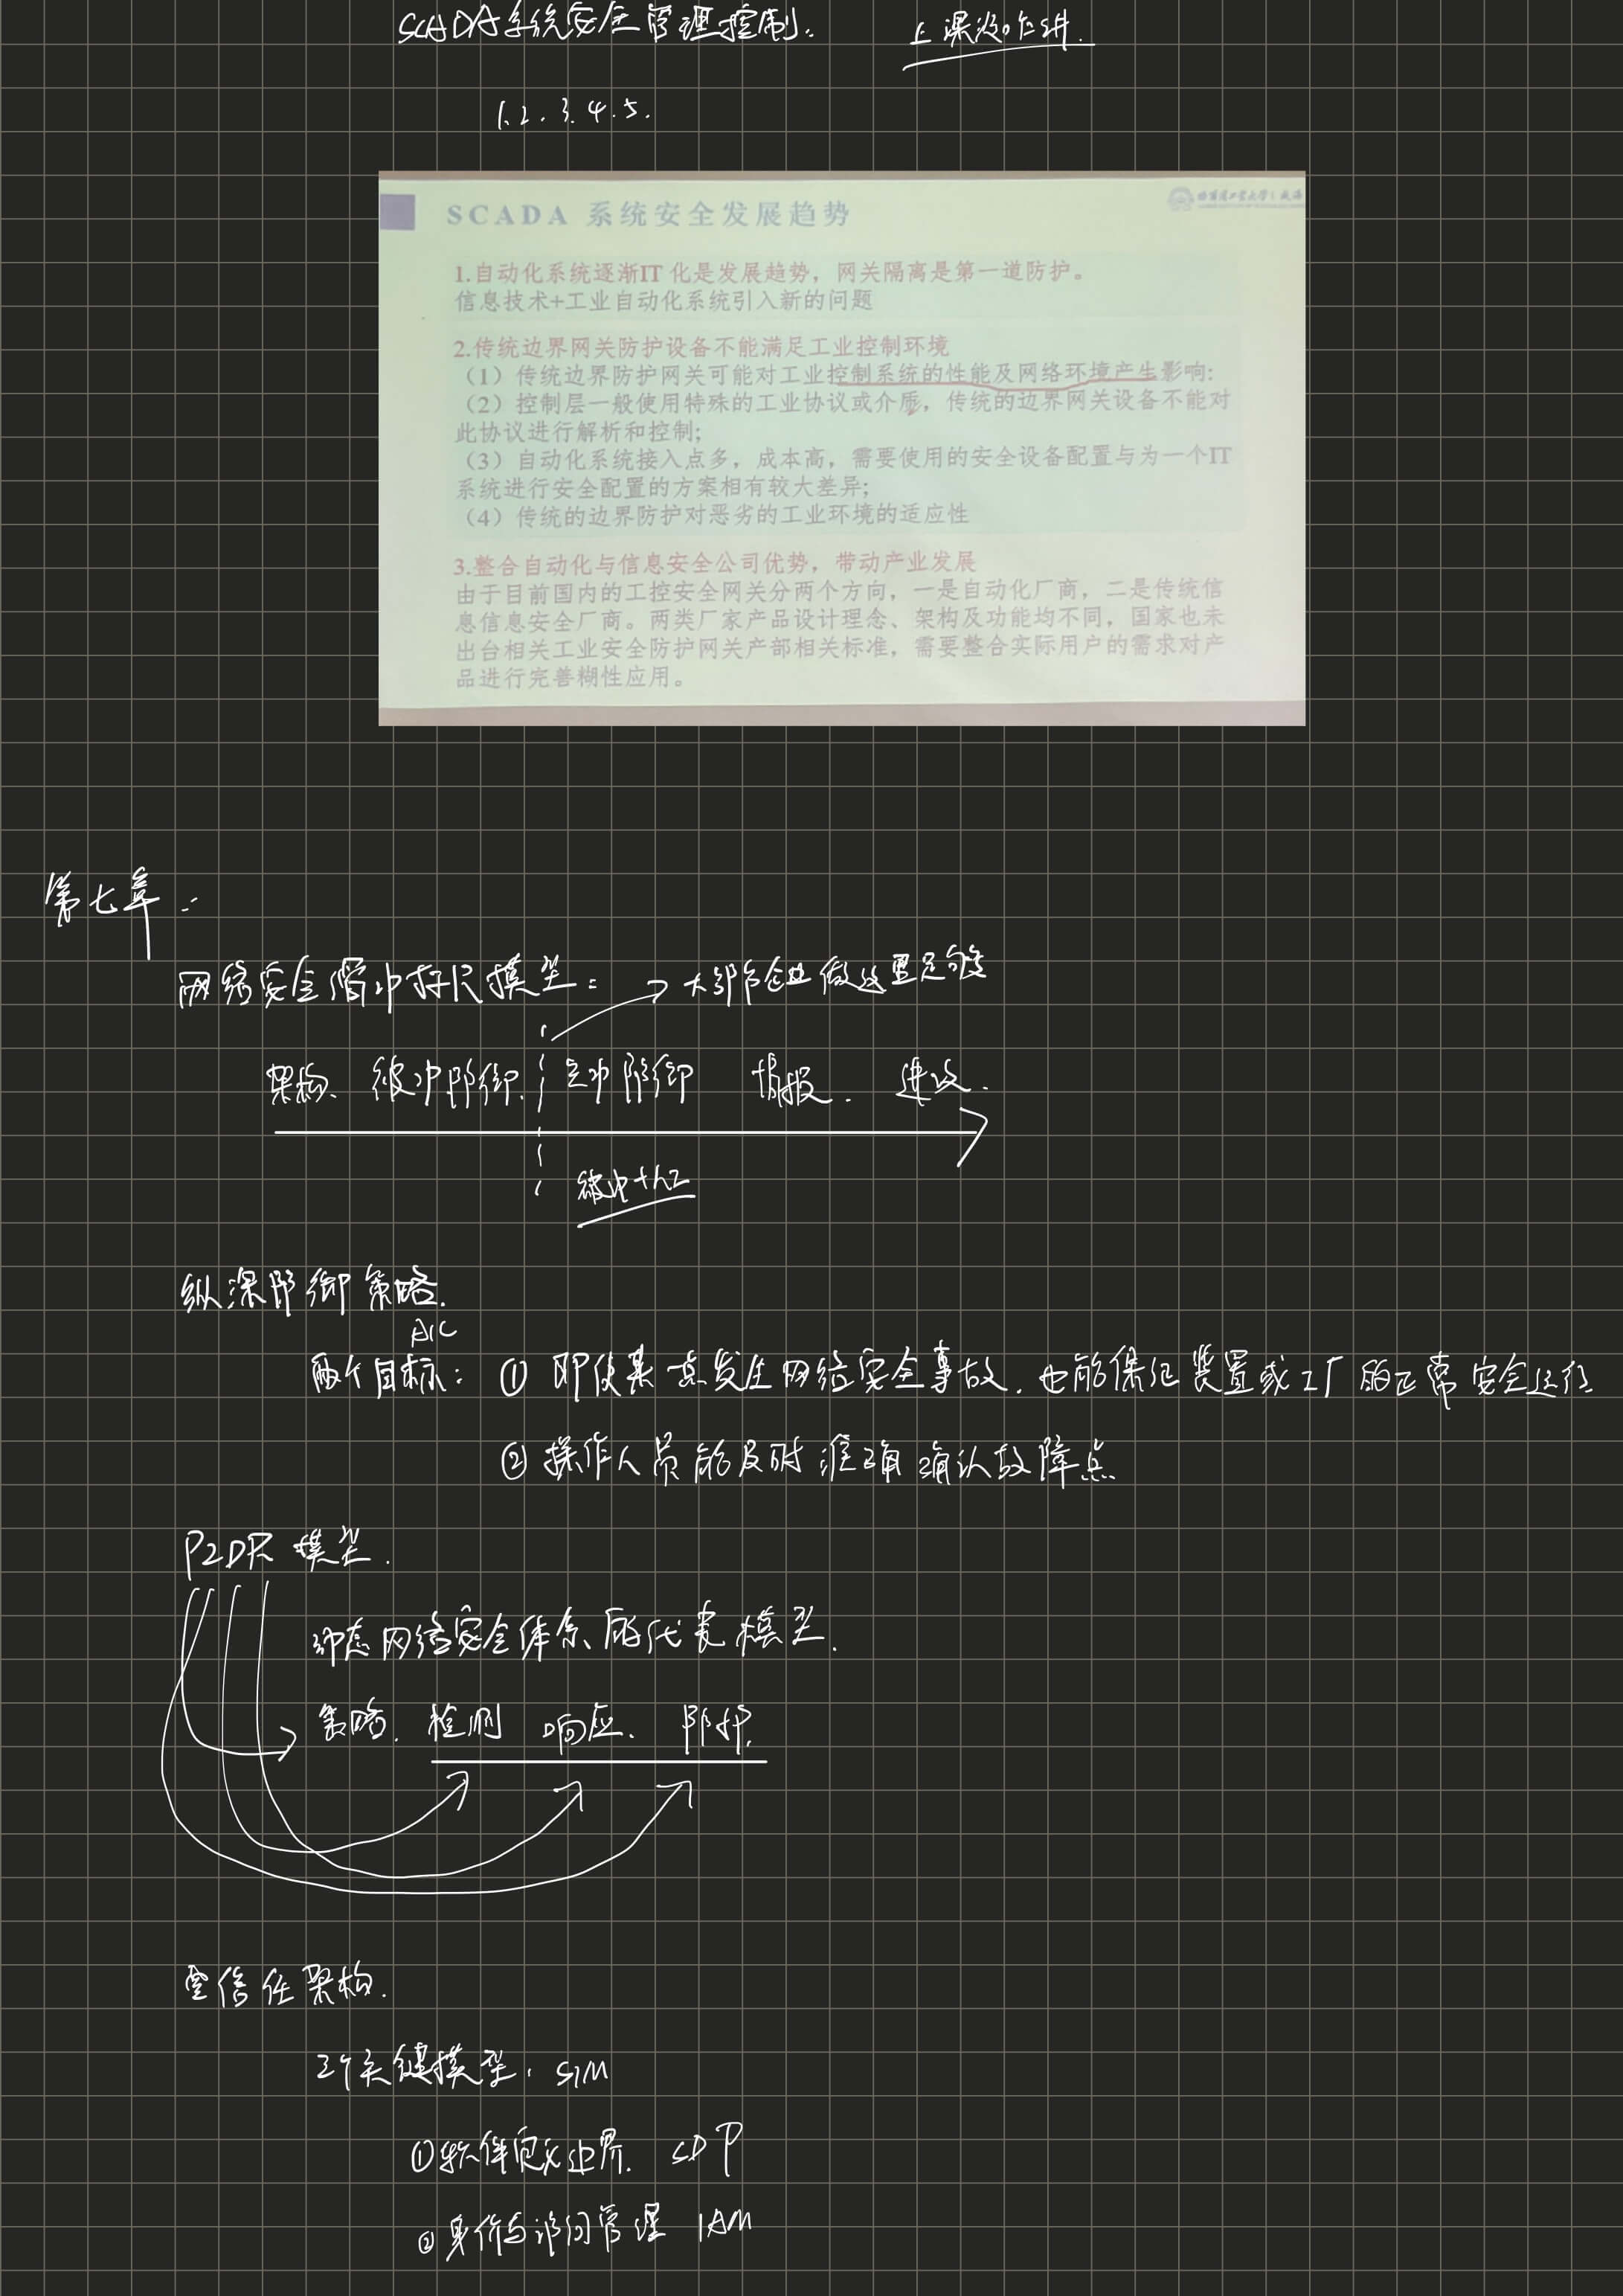 SCADA系统安全管理控制. 上课没咋讲.
1. 2. 3. 4. 5.
哈尔滨工业大学|威海
SCADA 系统安全发展趋势
1.自动化系统逐渐IT 化是发展趋势，网关隔离是第一道防护。
信息技术+工业自动化系统引入新的问题
2.传统边界网关防护设备不能满足工业控制环境
（1）传统边界防护网关可能对工业控制系统的性能及网络环境产生影响:
（2）控制层一般使用特殊的工业协议或介质，传统的边界网关设备不能对
此协议进行解析和控制;
（3）自动化系统接入点多，成本高，需要使用的安全设备配置与为一个IT
系统进行安全配置的方案相有较大差异;
（4）传统的边界防护对恶劣的工业环境的适应性
3.整合自动化与信息安全公司优势，带动产业发展
由于目前国内的工控安全网关分两个方向，一是自动化厂商，二是传统信
息信息安全厂商。两类厂家产品设计理念、架构及功能均不同，国家也未
出台相关工业安全防护网关产部相关标准，需要整合实际用户的需求对产
品进行完善糊性应用。
第七章:
网络安全滑动标尺模型: 大部分企业做这里足够
架构、被动防御. 主动防御 情报. 进攻.
被动+人工
纵深防御策略.
AIC
两个目标: ① 即使某一点发生网络安全事故, 也能保证装置或工厂的正常安全运行
② 操作人员能及时准确确认故障点
P2DR 模型.
动态网络安全体系的代表模型.
策略. 检测 响应. 防护.
零信任架构.
三个关键模型. SIM
①软件定义边界. SDP
②身份与访问管理 IAM